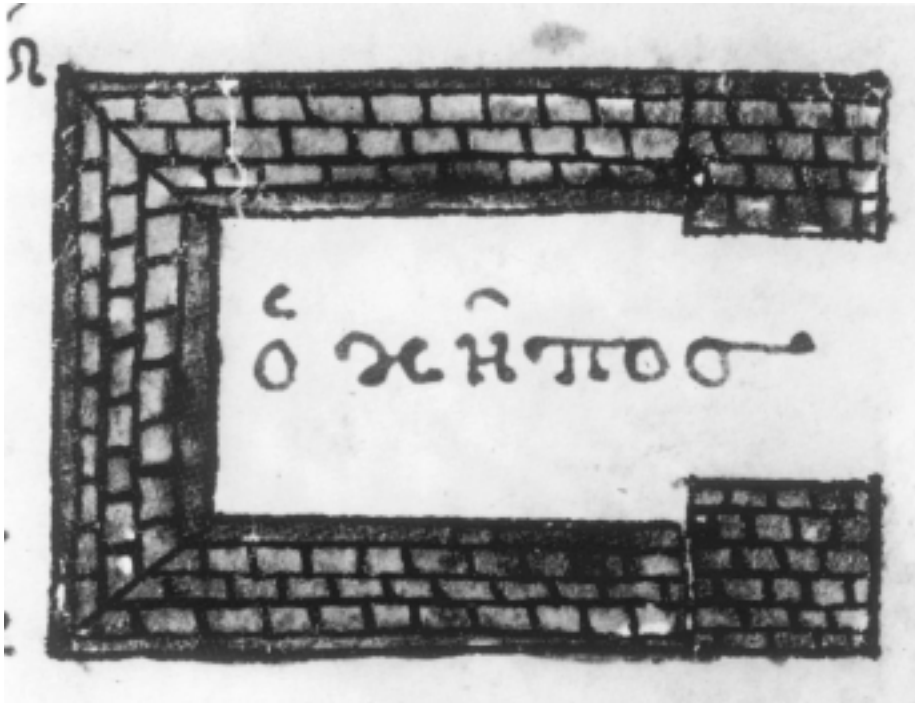 ὁ κῆπος